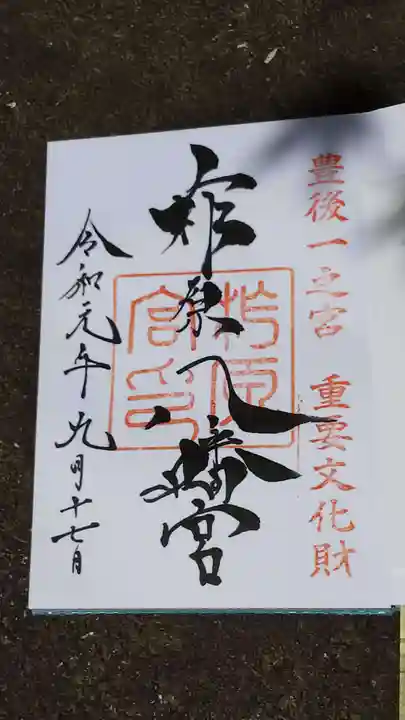 豊後一之宮 重要文化財
柞原八幡宮
柞原
宮印
令和元年九月十七日